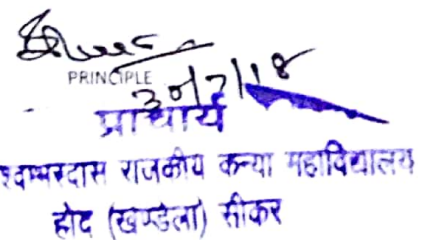 PRINCIPLE
30/7/18
प्राचार्य
श्वम्भरदास राजकीय कन्या महाविद्यालय
होद (खण्डेला) सीकर